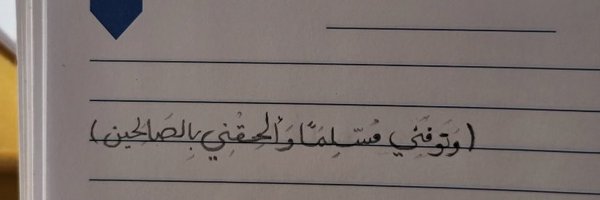 (وَتَوَفَّنِي مُسْلِمًا وَأَلْحِقْنِي بِالصَالِحِين)